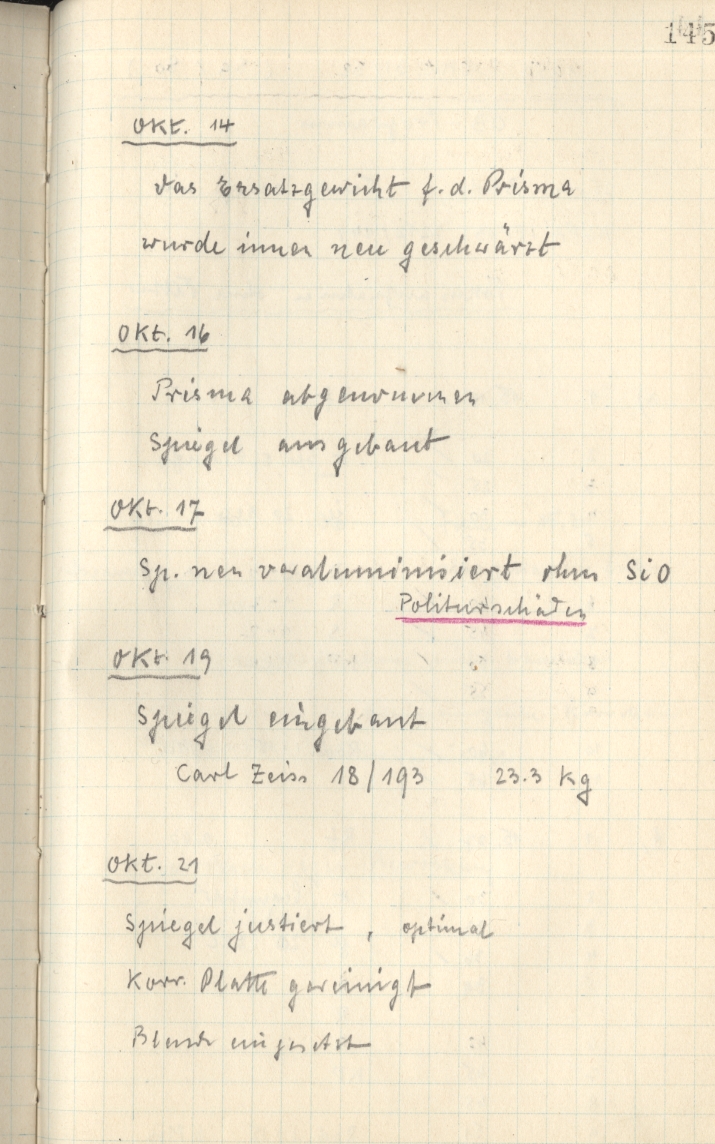 145
Okt. 14
Das Ersatzgewicht f. d. Prisma
wurde innen neu geschwärzt
Okt. 16
Prisma abgenommen
Spiegel ausgebaut
Okt. 17
Sp. neu veraluminisiert ohne SiO
Politurschäden
Okt. 19
Spiegel eingebaut
Carl Zeiss 18/193 23.3 kg
Okt. 21
Spiegel justiert, optimal
Korr. Platte gereinigt
Blende eingesetzt